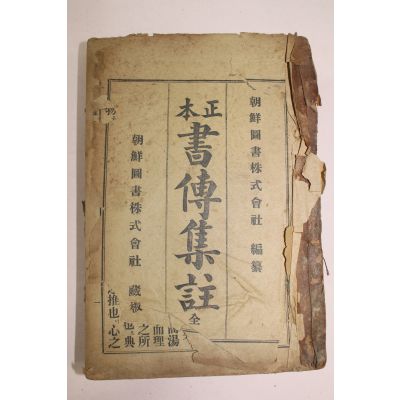 朝鮮圖書株式會社 編纂
正本
書傳集註 全
朝鮮圖書株式會社 藏板
湯
而理
之所
典
推也心之